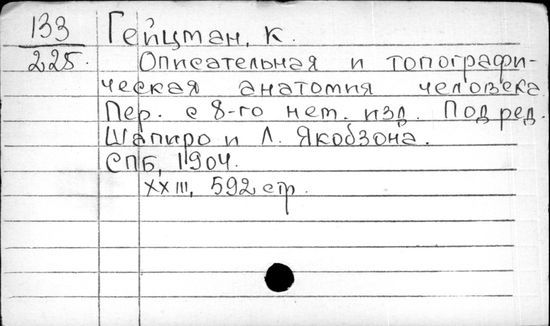 133 Гейцман, К.
225. Описательная и топографи-
ческая анатомия человека
Пер. с 8-го нем. изд. Под ред.
Шапиро и Л. Якобзона.
СПБ, 1904.
XXIII, 592 стр.